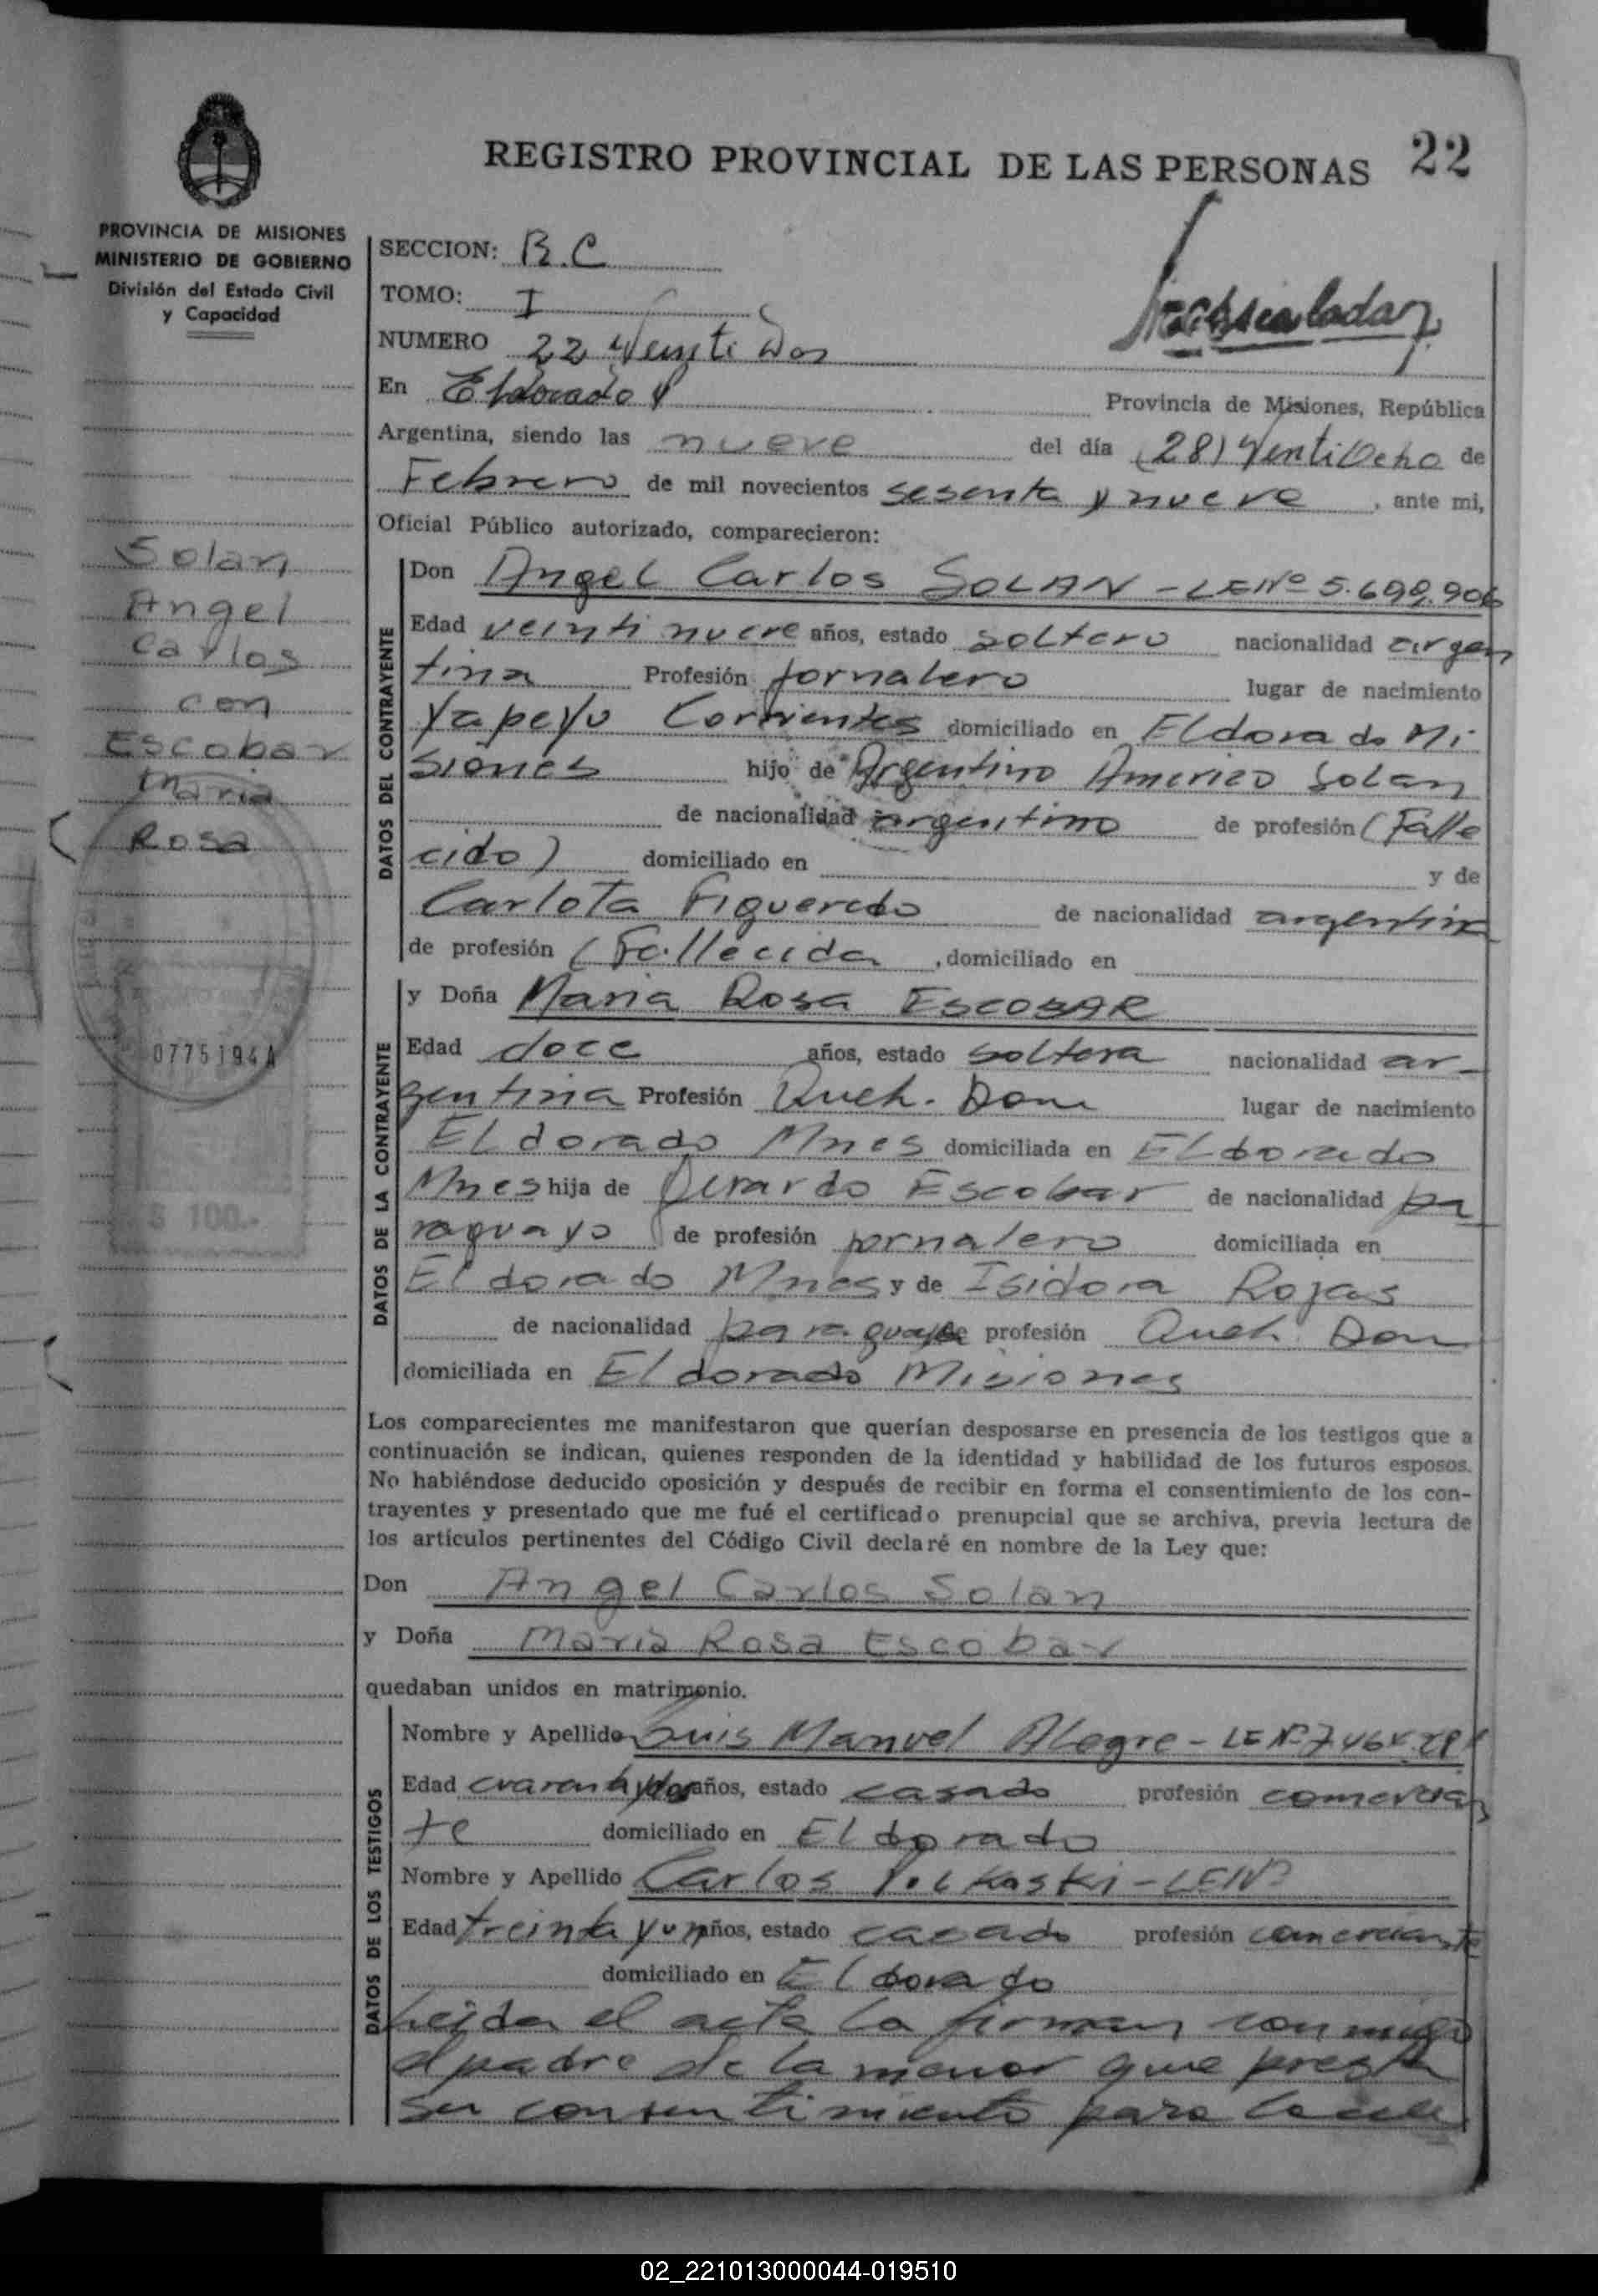 REGISTRO PROVINCIAL DE LAS PERSONAS 22
PROVINCIA DE MISIONES
MINISTERIO DE GOBIERNO
División del Estado Civil
y Capacidad
SECCION: B.C
TOMO: I
NUMERO 22 Veinti Dos
En Eldorado Provincia de Misiones, República
Argentina, siendo las nueve del día (28) Ventiocho de
Febrero de mil novecientos sesenta y nueve, ante mi,
Oficial Público autorizado, comparecieron:
Solan
Angel
Carlos
con
Escobar
Maria
Rosa
0775194A
$ 100.-
DATOS DEL CONTRAYENTE
Don Angel Carlos SOLAN - LE Nº 5.699.906
Edad veinti nueve años, estado soltero nacionalidad argen
tina Profesión jornalero lugar de nacimiento
Yapeyu Corrientes domiciliado en Eldorado Mi-
siones hijo de Argentino Americo Solan
de nacionalidad argentino de profesión (Falle
cido) domiciliado en y de
Carlota Figueredo de nacionalidad argentina
de profesión (Fallecida , domiciliado en
DATOS DE LA CONTRAYENTE
y Doña Maria Rosa ESCOBAR
Edad doce años, estado soltera nacionalidad ar-
gentina Profesión Queh. Dom lugar de nacimiento
Eldorado Mnes domiciliada en Eldorado
Mnes hija de Gerardo Escobar de nacionalidad pa
raguayo de profesión jornalero domiciliada en
Eldorado Mnes y de Isidora Rojas
de nacionalidad paraguaya profesión Queh. Dom
domiciliada en Eldorado Misiones
Los comparecientes me manifestaron que querían desposarse en presencia de los testigos que a
continuación se indican, quienes responden de la identidad y habilidad de los futuros esposos.
No habiéndose deducido oposición y después de recibir en forma el consentimiento de los con-
trayentes y presentado que me fué el certificado prenupcial que se archiva, previa lectura de
los artículos pertinentes del Código Civil declaré en nombre de la Ley que:
Don Angel Carlos Solan
y Doña Maria Rosa Escobar
quedaban unidos en matrimonio.
DATOS DE LOS TESTIGOS
Nombre y Apellido Luis Manuel Alegre - LE Nº
Edad cuarenta y dos años, estado casado profesión comercian
te domiciliado en Eldorado
Nombre y Apellido Carlos - LE Nº
Edad treinta y un años, estado casado profesión comerciante
domiciliado en Eldorado
Leida el acta la firman conmigo
el padre de la menor que presta
su consentimiento para
02_221013000044-019510